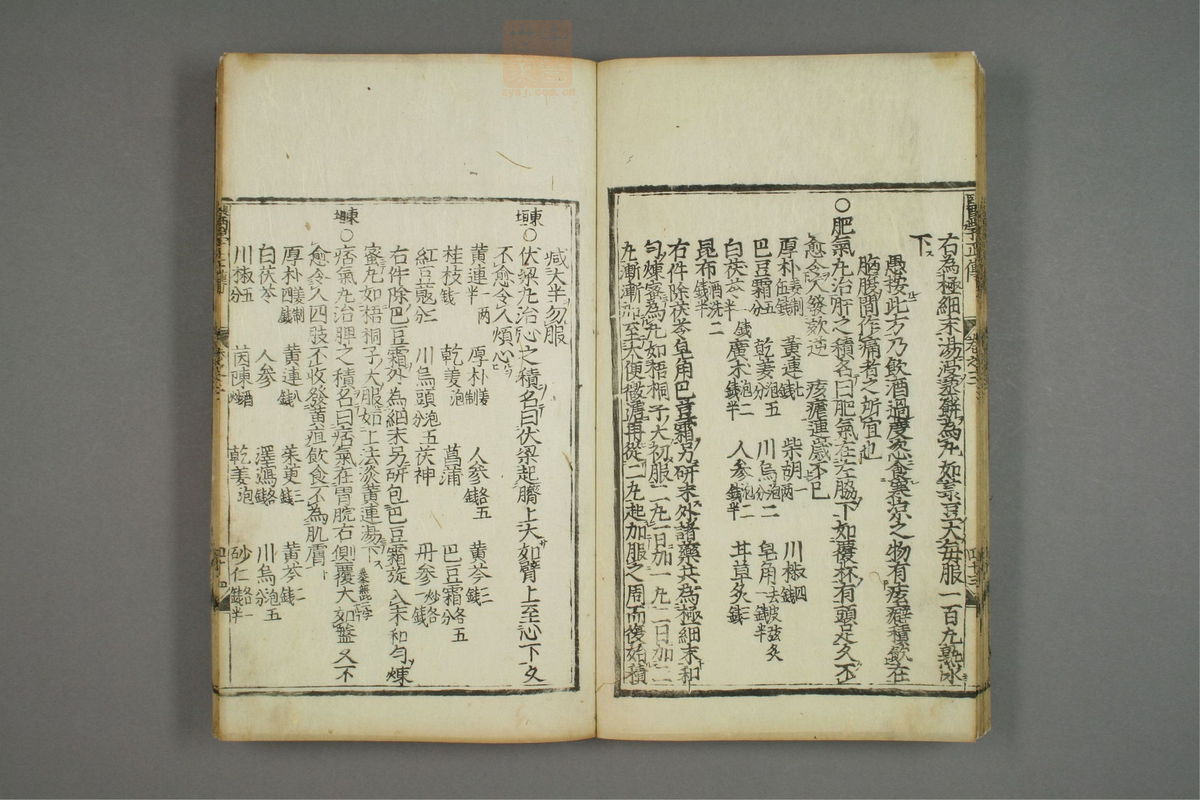 醫學正傳
右為極細末湯浸蒸餅為丸如菉豆大每服一百丸熟水
下
愚按此方乃飲酒過度飲食寒涼之物有痃癖種飲在
胸腹間作痛者之所宜也
○肥氣丸治肝之積名曰肥氣在左脇下如覆杯有頭足久不
愈令人發欬逆 痎瘧連歲不已
厚朴姜製五錢 黃連七錢 柴胡一兩 川椒四錢
巴豆霜五分 乾姜炮五分 川烏炮二分 皂角去皮弦炙一錢半
白茯苓一錢半 廣木炮二錢半 人參炮二錢半 甘草炙三錢
昆布酒洗二錢半
右件除茯苓皂角巴豆霜另研末外諸藥共為極細末和
勻煉蜜為丸如梧桐子大初服二丸一日加一丸二日加二
丸漸漸加至大便微溏再從二丸起加服之周而復始積
四十三
減大半勿服
東垣○伏梁丸治心之積名曰伏梁起臍上大如臂上至心下久
不愈令人煩心
黃連一兩半 厚朴姜制 人參各五錢 黃芩三錢
桂枝一錢 乾姜炮 菖蒲 巴豆霜各五分
紅豆蔻二分 川烏頭炮五分 茯神 丹參炒各一錢
右件除巴豆霜外為細末另研包巴豆霜旋入末和勻煉
蜜丸如梧桐子大服如上法淡黃連湯下
東垣○痞氣丸治脾之積名曰痞氣在胃脘右側覆大如盤久不
愈令人四肢不收發黃疸飲食不為肌膚
厚朴姜制四錢 黃連八錢 茱萸三錢 黃芩二錢
白茯苓 人參 澤瀉各一錢 川烏炮五分
川椒五分 茵陳酒炒 乾姜炮 砂仁各一錢半
四十四